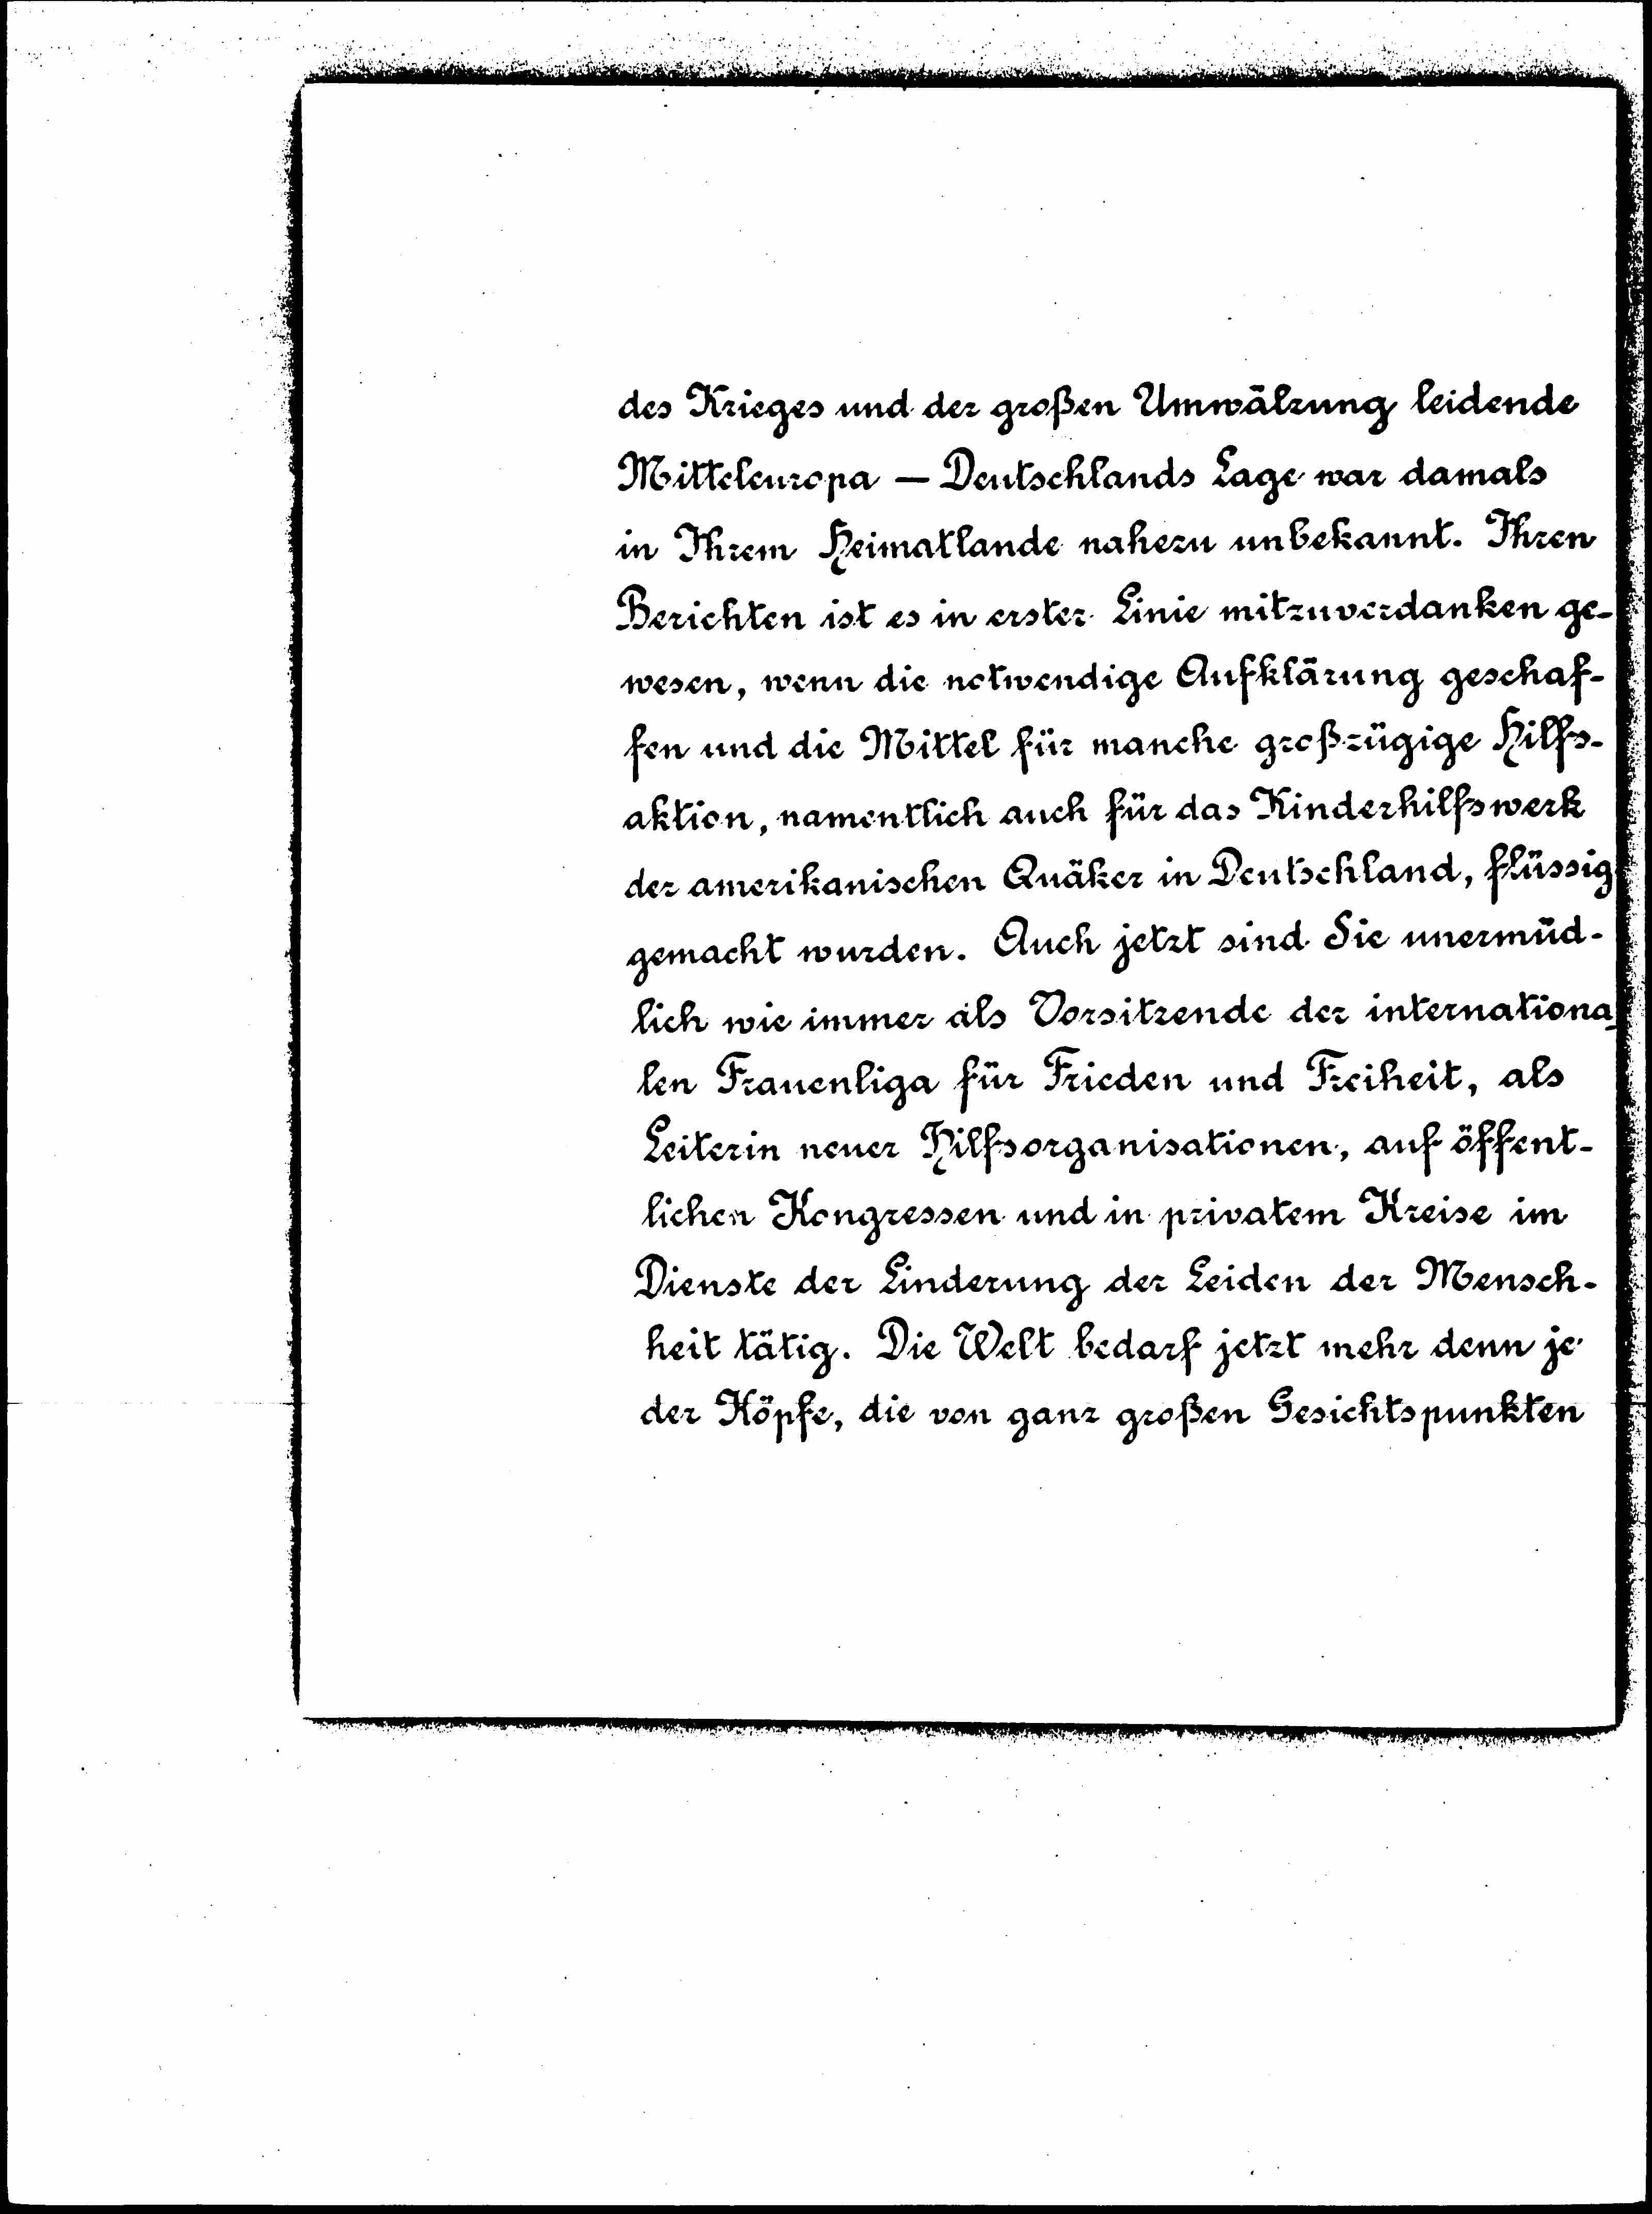 des Krieges und der großen Umwälzung leidende
Mitteleuropa — Deutschlands Lage war damals
in Ihrem Heimatlande nahezu unbekannt. Ihren
Berichten ist es in erster Linie mitzuverdanken ge-
wesen, wenn die notwendige Aufklärung geschaf-
fen und die Mittel für manche großzügige Hilfs-
aktion, namentlich auch für das Kinderhilfswerk
der amerikanischen Quäker in Deutschland, flüssig
gemacht wurden. Auch jetzt sind Sie unermüd-
lich wie immer als Vorsitzende der internationa-
len Frauenliga für Frieden und Freiheit, als
Leiterin neuer Hilfsorganisationen, auf öffent-
lichen Kongressen und in privatem Kreise im
Dienste der Linderung der Leiden der Mensch-
heit tätig. Die Welt bedarf jetzt mehr denn je
der Köpfe, die von ganz großen Gesichtspunkten